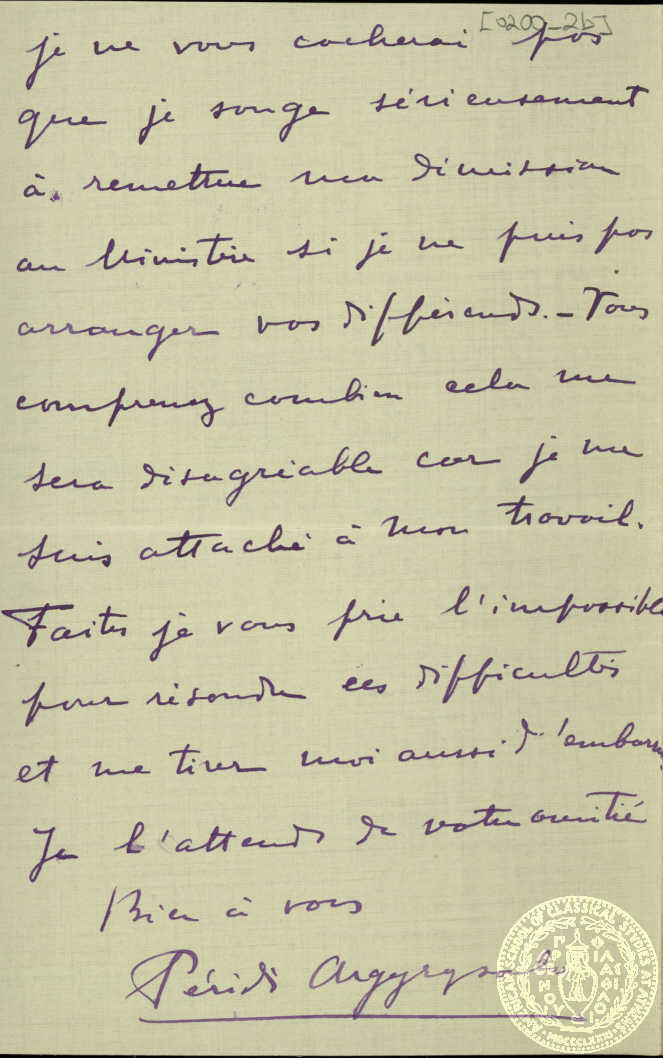 [0209_2b]
je ne vous cacherai pas
que je songe sérieusement
à remettre ma démission
au Ministère si je ne puis pas
arranger vos différends. - Vous
comprenez combien cela me
sera disagréable car je me
suis attaché à mon travail.
Faites je vous prie l'impossible
pour résoudre ces difficultés
et me tirer moi aussi d'embarras
Je l'attends de votre amitié
Bien à vous
Péridi Argyrysoulo
AMERICAN SCHOOL OF CLASSICAL STUDIES AT ATHENS